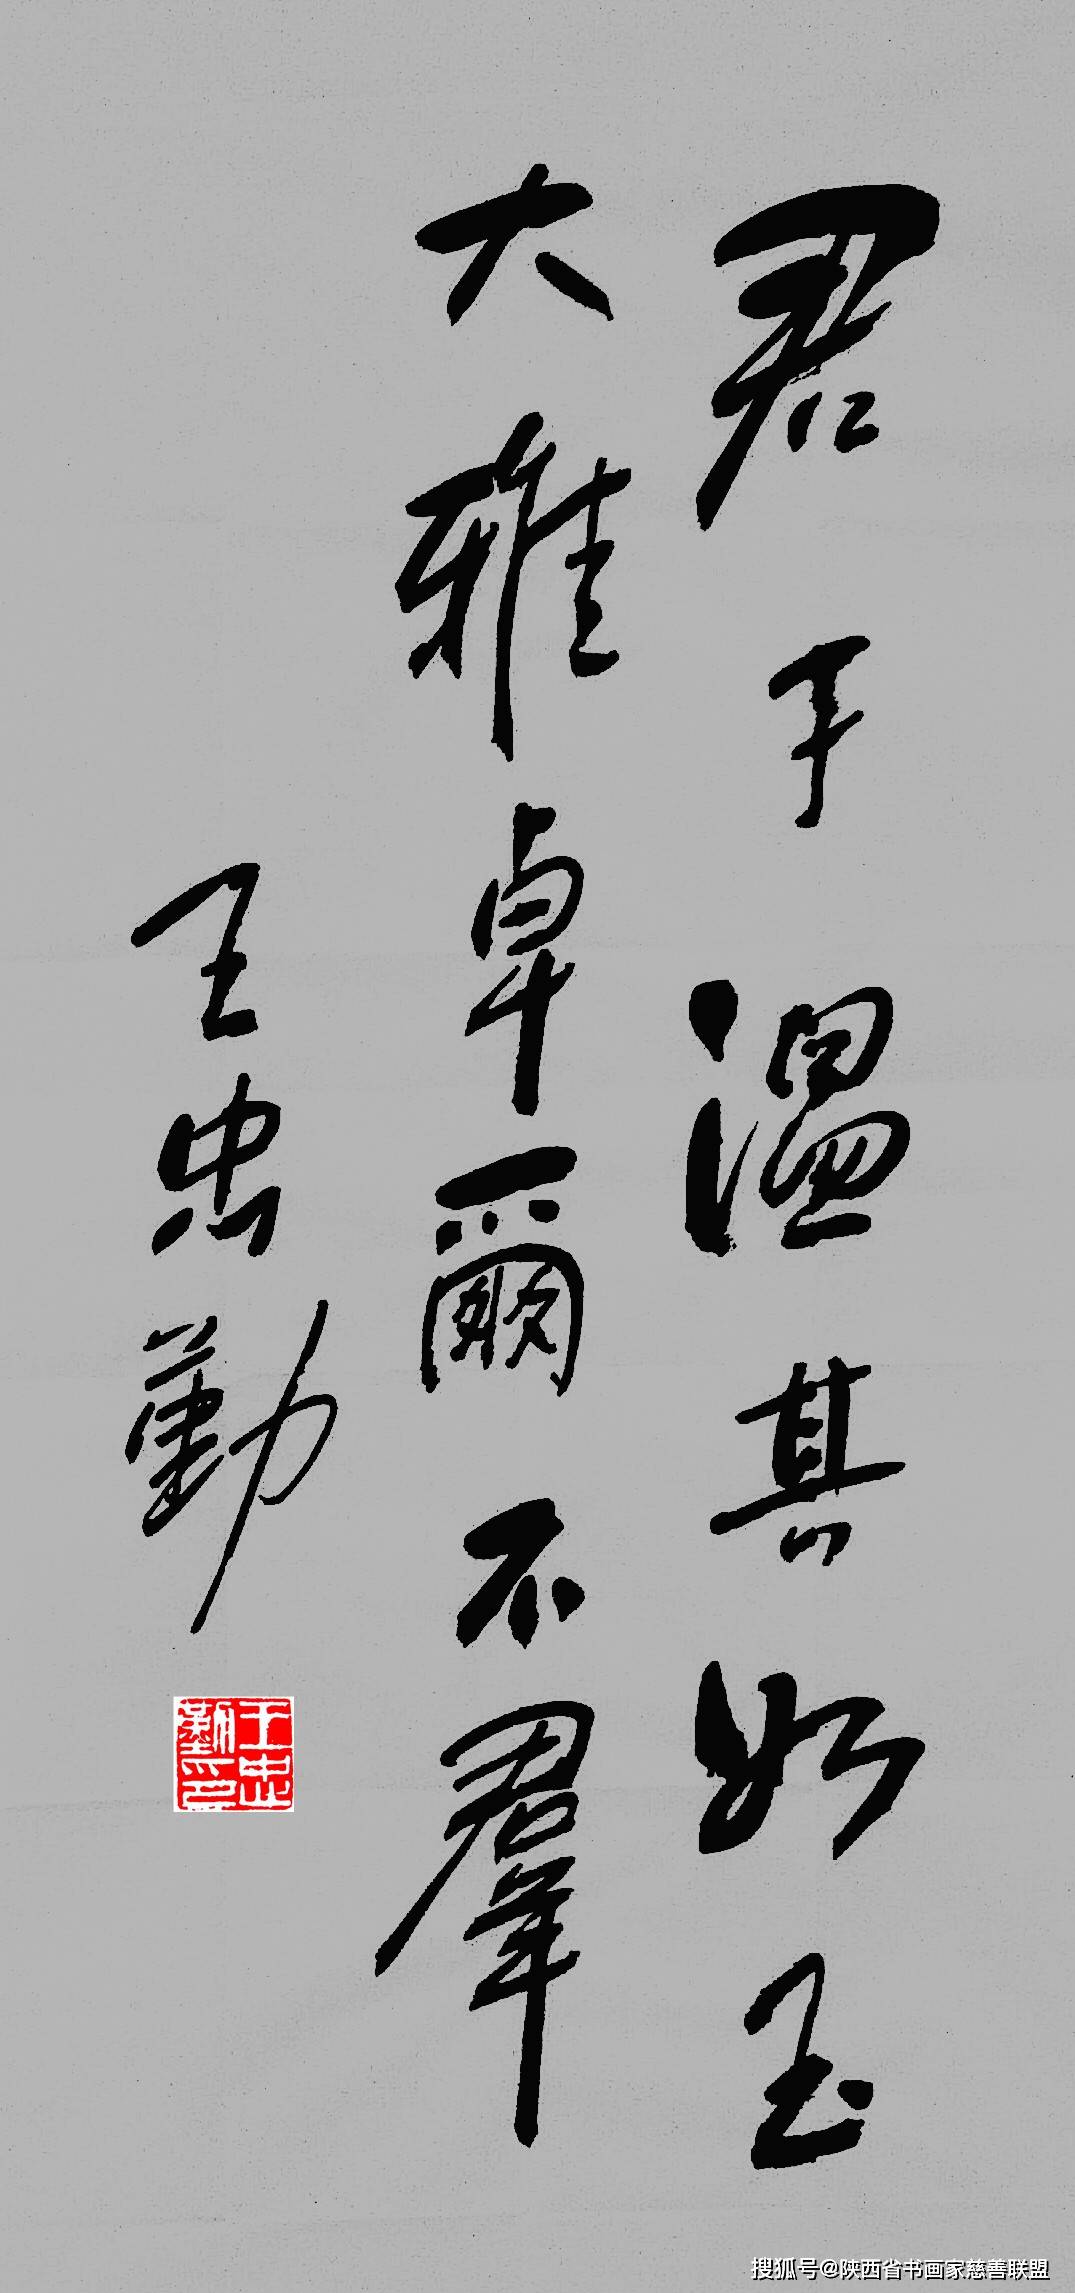 君子温其如玉
大雅卓爾不羣
王忠勤
王忠勤印
搜狐号@陕西省书画家慈善联盟